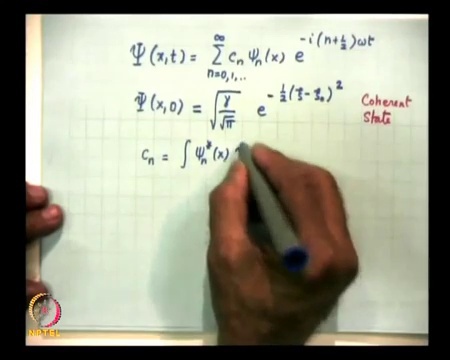 Ψ(x,t) = ∑_{n=0,1,..}^{∞} c_n ψ_n(x) e^{-i(n+½)ωt}
Ψ(x,0) = √(γ/√π) e^{-½(ξ-ξ₀)²} Coherent State
c_n = ∫ ψ_n*(x)
NPTEL